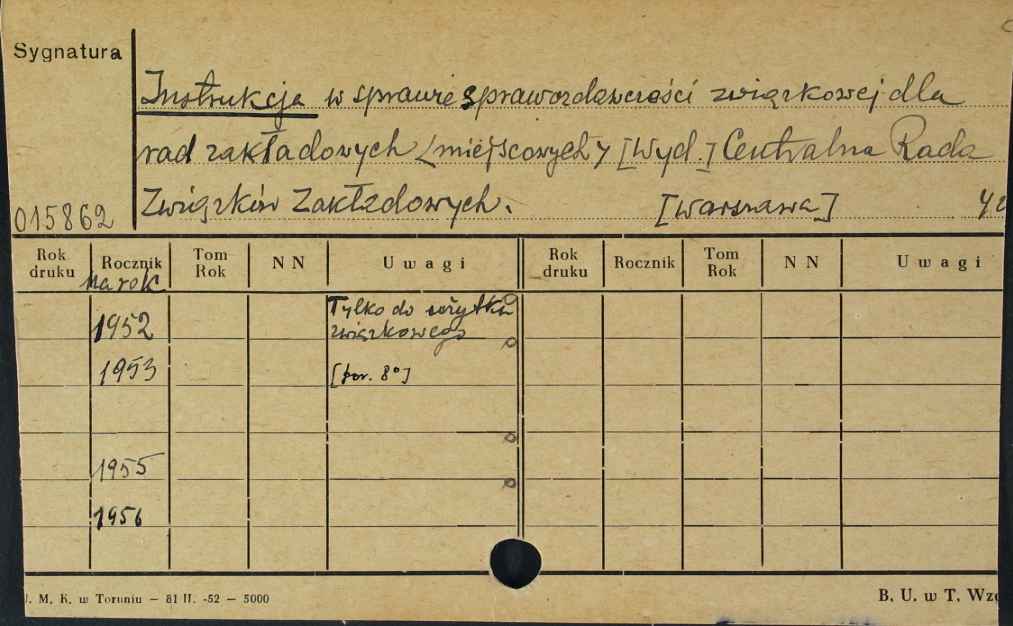 Sygnatura
Instrukcja w sprawie sprawozdawczości związkowej dla
rad zakładowych /miejscowych/ [Wyd.] Centralna Rada
015862 Związków Zakładowych. [Warszawa]
Rok druku Rocznik Tom Rok N N Uwagi Rok druku Rocznik Tom Rok N N Uwagi
na rok
1952 Tylko do użytku
związkowego
1953 [por. 8°]
1955
1956
. M. K. w Toruniu — 81 II. -52 — 5000 B. U. w T.